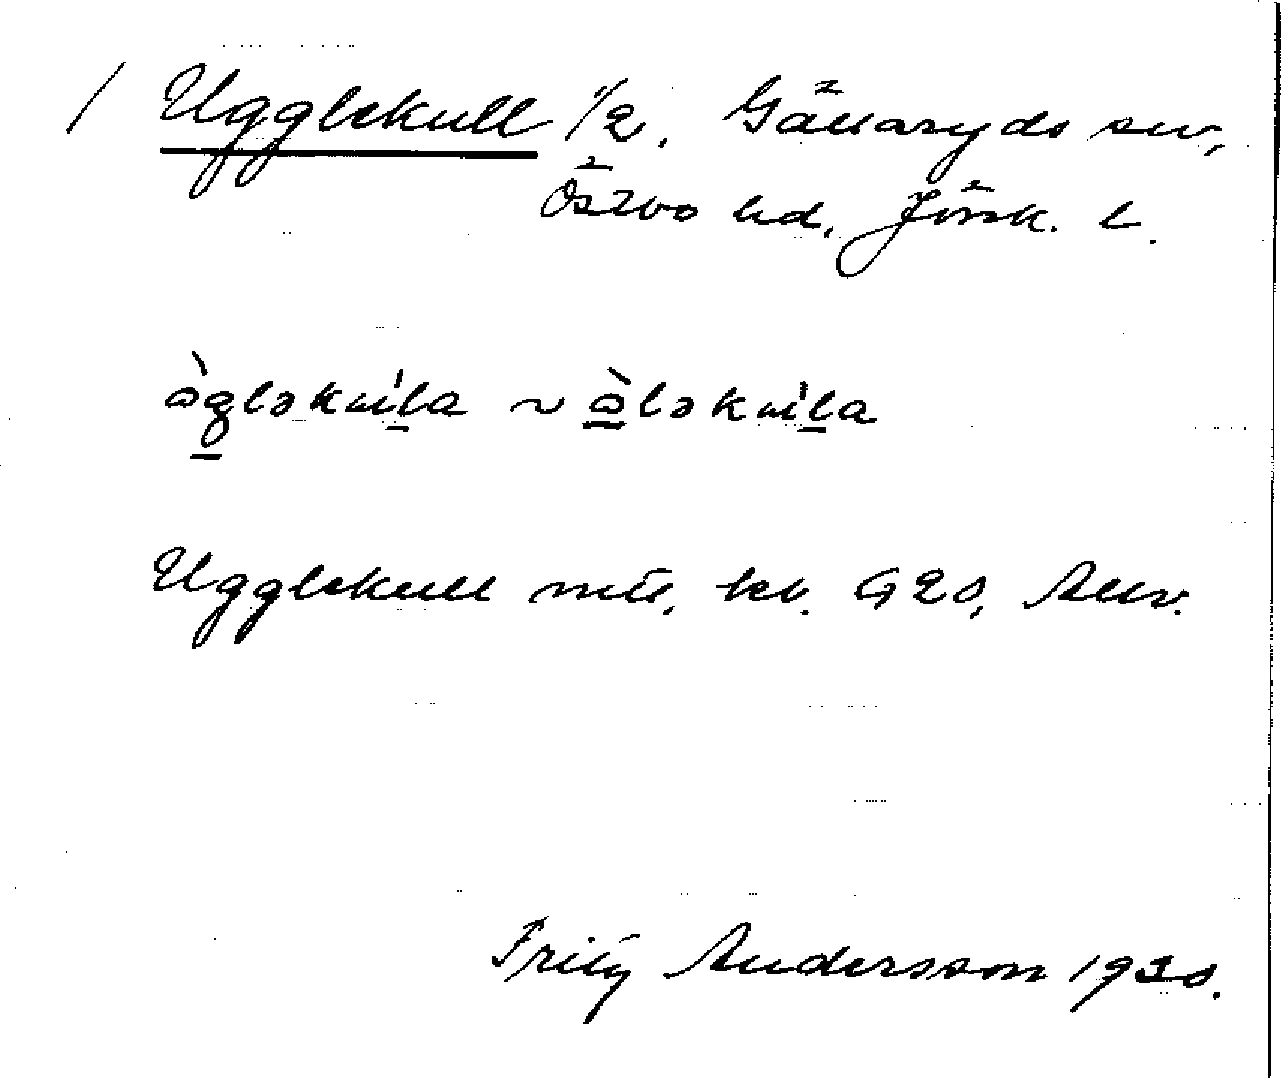 / Ugglekull 1/2. Gällaryds sn,
Östbo hd, Jönk. L.
ògləkùla ~ òləkùla
Ugglekull mtl, kb. G20, Allm.
Fritz Andersson 1930.